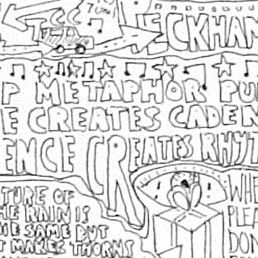 ECKHAM
P METAPHOR PU
E CREATES CADEN
ENCE CREATES RHYTH
TURE OF
HE RAIN IS
HE SAME BUT
T MAKES THORNS
WHE
PLEA
DON